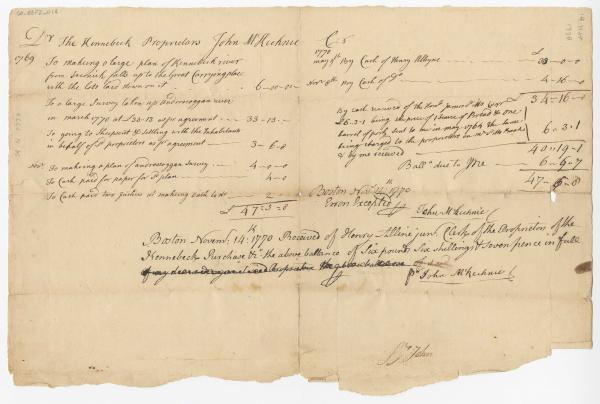 Dr The Kennebeck Proprietors John McKechnie Cr
1769
To making a large plan of Kennebeck river
from Swewick falls up to the Great Carrying place
with the lots laid down on it 6-00-00
To a large Survey taken up androscoggan river
in march 1770 at £33-13 as pr agreement 33-13-
To going to Sheepscot & settling with the Inhabitants
in behalf of sd proprietors as pr agreement 3-6-8
Novr To making a plan of androscoggan Survey 4-0-0
To Cash paid for paper for sd plan 4-0
To Cash paid two Justices at making oath to do 2
£ 47-5-8
1770 £
may 9th By Cash of Henry Alleyne 30-0-0
Novr 8th By Cash of Do 4-16-0
£ 34-16-0
By cash received of the Honl James
£6-3-1 being the price of 1 barrel of Bread & one
barrel of pork sent to me in may 1764 the same
being charged to the proprietors
& by me received 6-3-1
40-19-1
Balle due to Me 6-6-7
47-5-8
Boston Novr 14th 1770
Errors Excepted
John McKechnie
Boston Novemb 14th 1770 Received of Henry Alline junr Clerk of the Proprietors of the
Kennebeck Purchase &c the above ballance of Six pounds Six shillings & Seven pence in full
pr John McKechnie
Dr John